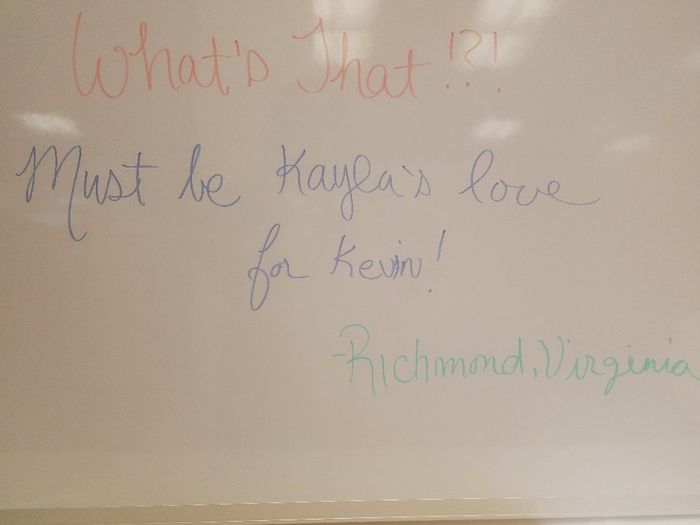 What's That!?!
Must be Kayla's love
for Kevin!
-Richmond, Virginia